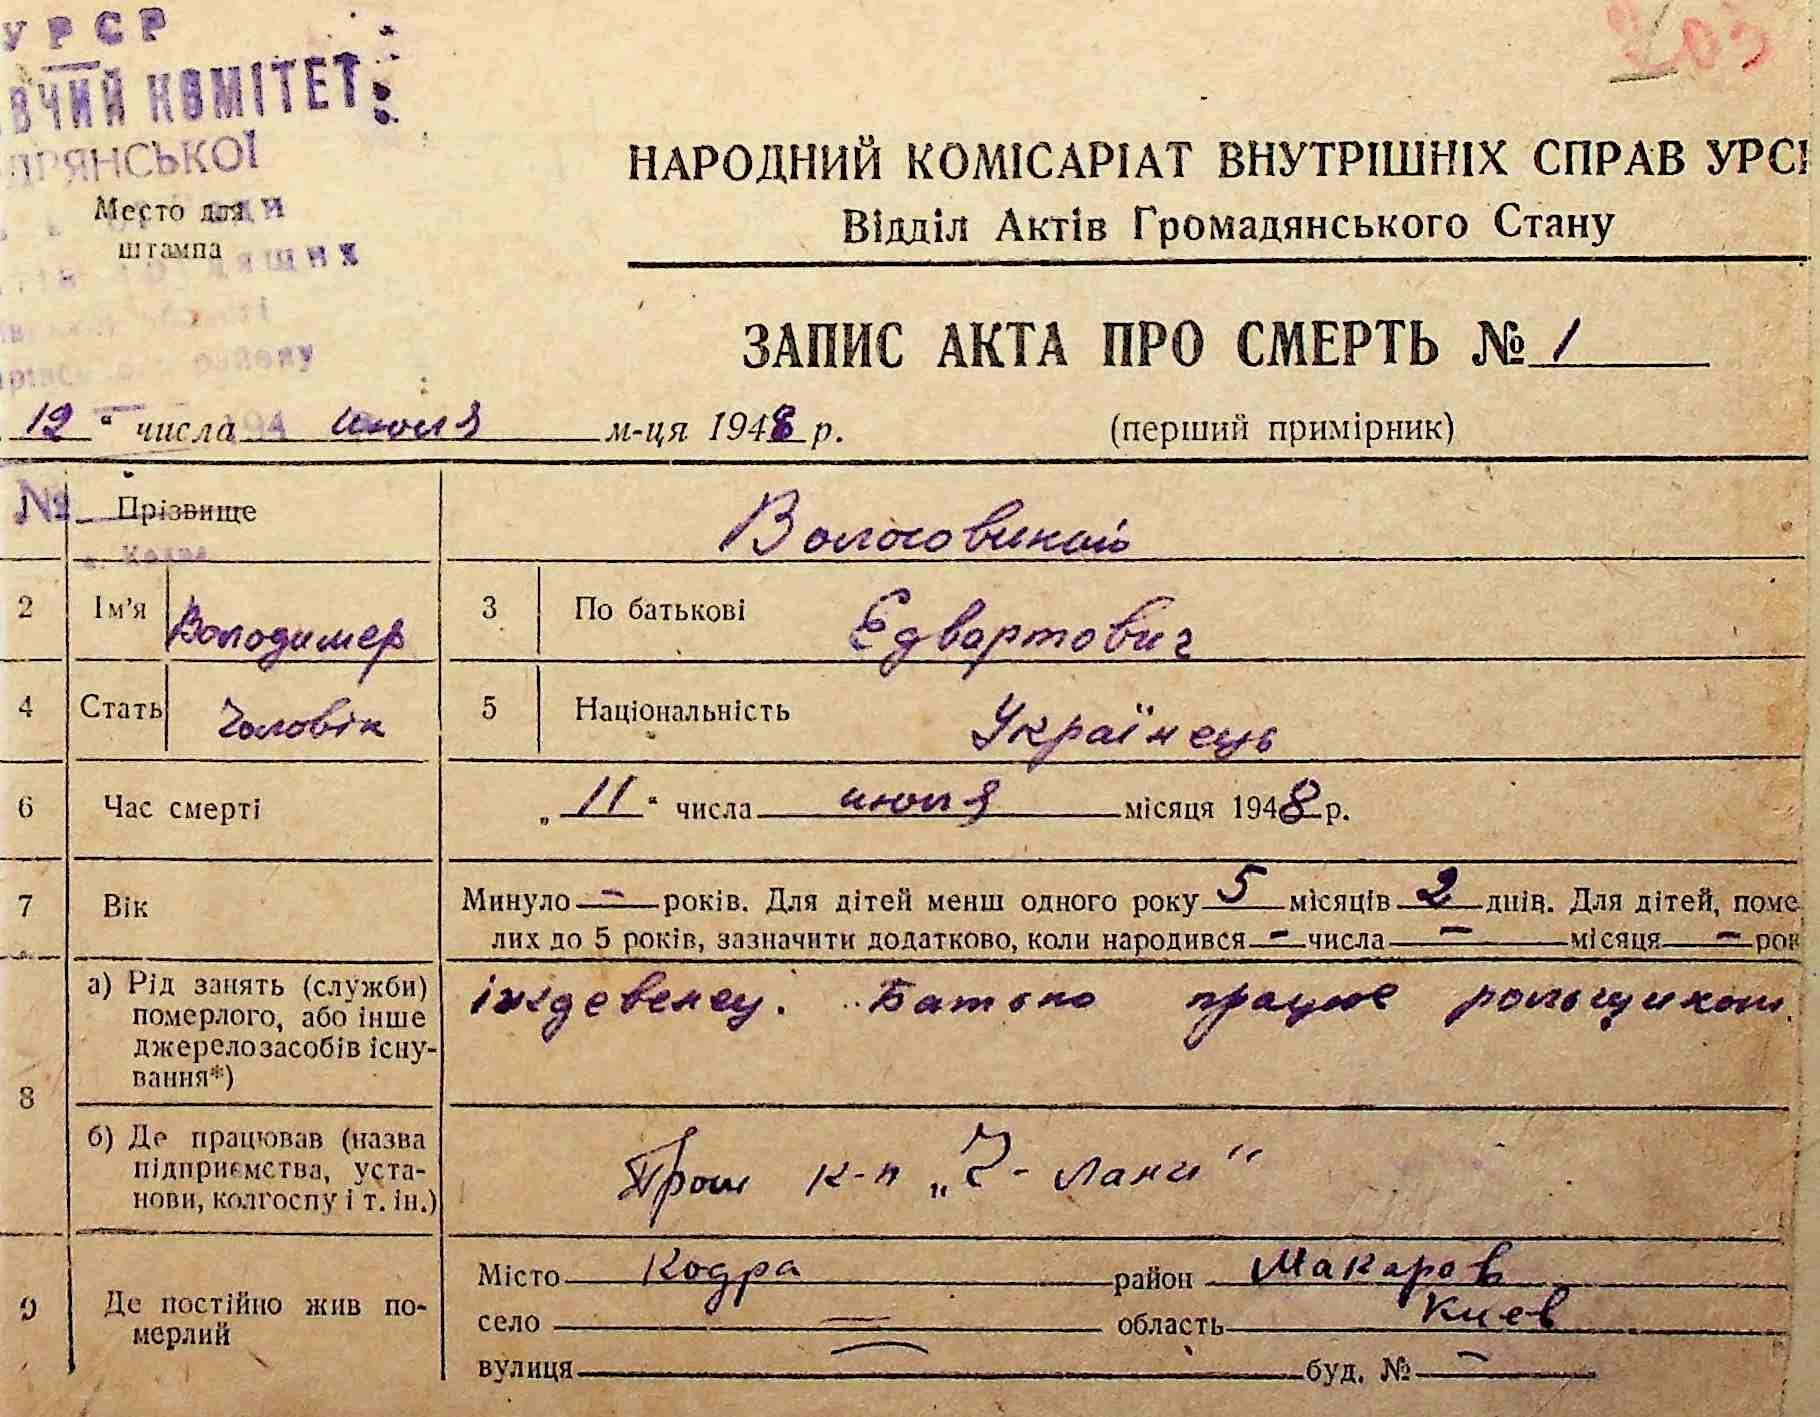 УРСР
ВЧИЙ КОМІТЕТ
Место для
штампа
НАРОДНИЙ КОМІСАРІАТ ВНУТРІШНІХ СПРАВ УРСР
Відділ Актів Громадянського Стану
ЗАПИС АКТА ПРО СМЕРТЬ № 1
12 " числа июля м-ця 1948 р. (перший примірник)
№ Прізвище
2 Ім'я Володимер 3 По батькові Едвартович
4 Стать Чоловік 5 Національність Українець
6 Час смерті „ 11 " числа июля місяця 1948 р.
7 Вік Минуло — років. Для дітей менш одного року 5 місяців 2 днів. Для дітей, поме-
лих до 5 років, зазначити додатково, коли народився — числа — місяця — рок
8 а) Рід занять (служби)
померлого, або інше
джерело засобів існу-
вання*)
іждевенец. Батько працює рольщиком.
б) Де працював (назва
підприємства, уста-
нови, колгоспу і т. ін.)
Пром к-п „7-Лани"
9 Де постійно жив по-
мерлий
Місто Кодра район Макаров
село — область Киев
вулиця — буд. № —